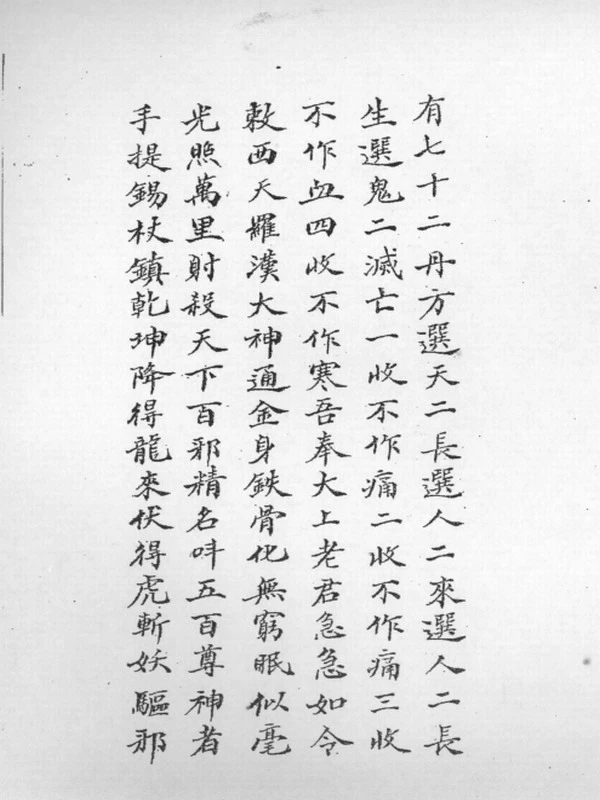 有七十二丹方選天二長選人二來選人二長
生選鬼二滅亡一收不作痛二收不作痛三收
不作血四收不作寒吾奉大上老君急急如令
敕西天羅漢大神通金身鉄骨化無窮眠似毫
光照萬里射殺天下百邪精名呌五百尊神者
手提錫杖鎮乾坤降得龍來伏得虎斬妖驅邪